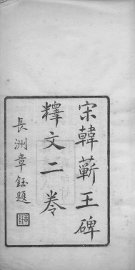 宋韓蘄王碑
釋文二卷
長洲章鈺題